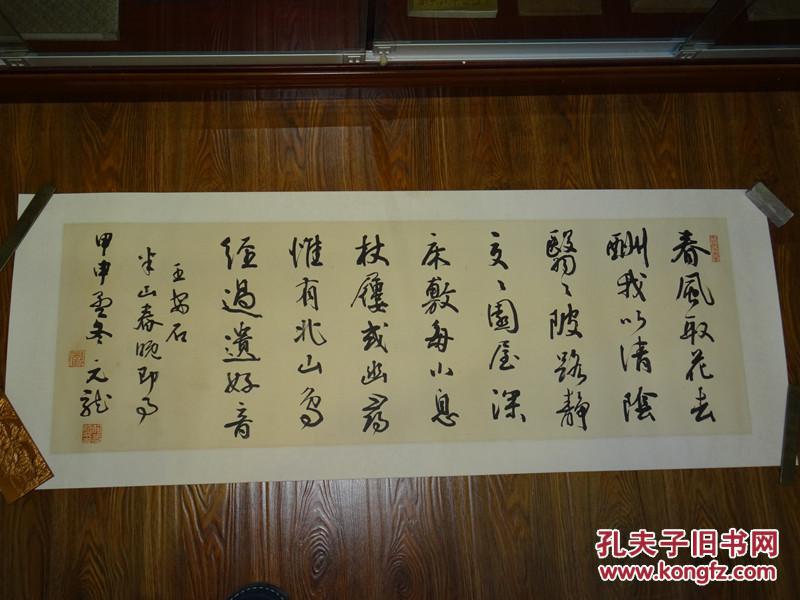 春風取花去
酬我以清陰
翳〻陂路静
交〻園屋深
床敷每小息
杖屨或幽尋
惟有北山鳥
經過遺好音
王安石
半山春晚即事
甲申孟冬元龍
孔夫子旧书网
www.kongfz.com